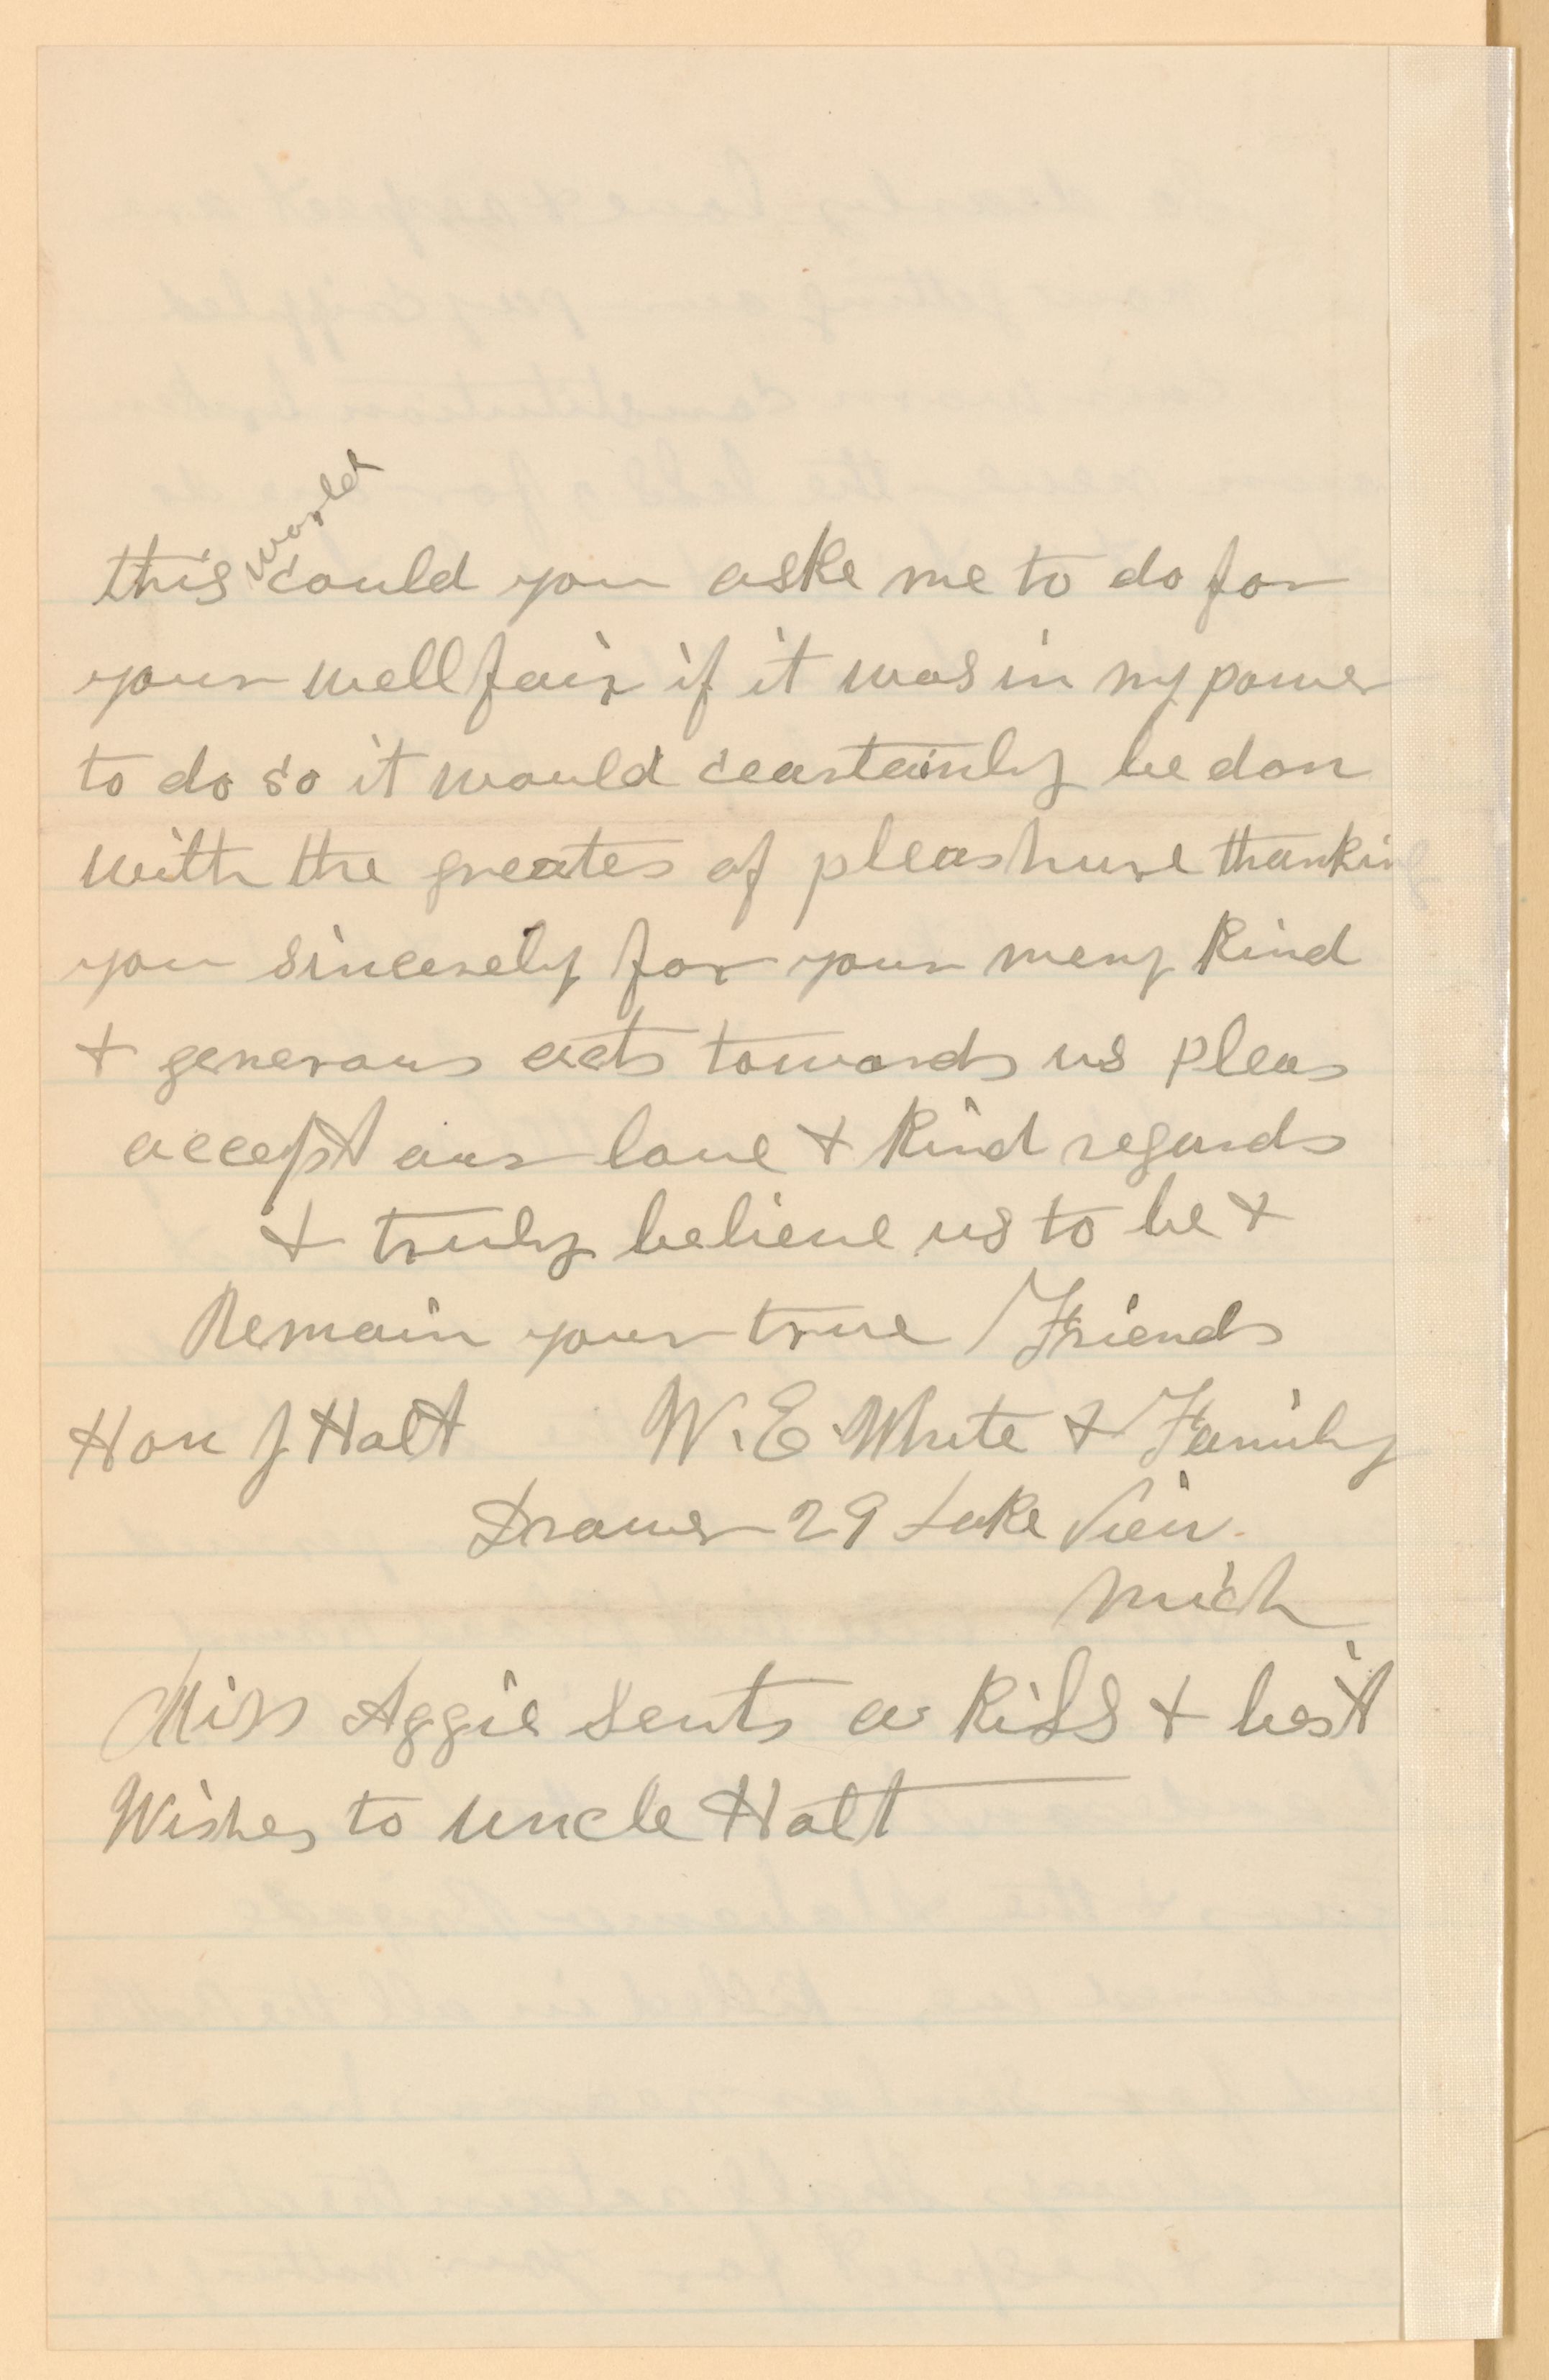 this world could you aske me to do for
your wellfair if it was in my power
to do so it would ceartainly be don
with the greates of pleashure thanking
you sincerely for your meny kind
+ generous acts towards us pleas
accept our love + kind regards
+ truly believe us to be +
Remain your true Friends
Hon J Holt W. E. White + Family
Drawer 29 Lake View.
Mich
Miss Aggie sents a kiss + best
Wishes to uncle Holt